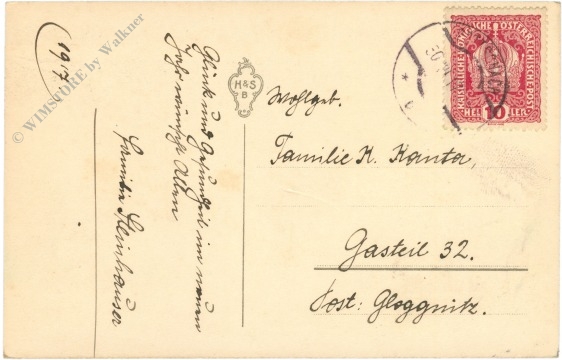 1917
© WIMSTORE by Walkner
Glück und Gesundheit im neuen
Jahr wünscht Allen
Familie Steinhauser
H&S
B
Wohlgeb.
Familie K. Kanta,
Gasteil 32.
Post: Gloggnitz.
KAISERLICHE KÖNIGLICHE ÖSTERREICHISCHE POST
10
HELLER
30